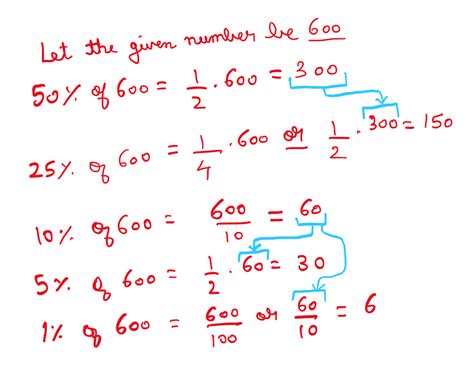 Let the given number be 600
50% of 600 = 1/2 · 600 = 300
25% of 600 = 1/4 · 600 or 1/2 · 300 = 150
10% of 600 = 600/10 = 60
5% of 600 = 1/2 · 60 = 30
1% of 600 = 600/100 or 60/10 = 6